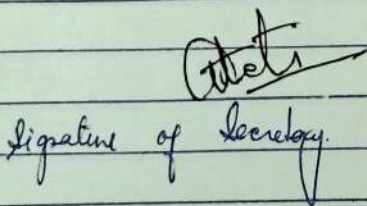 Signature of Secretary.